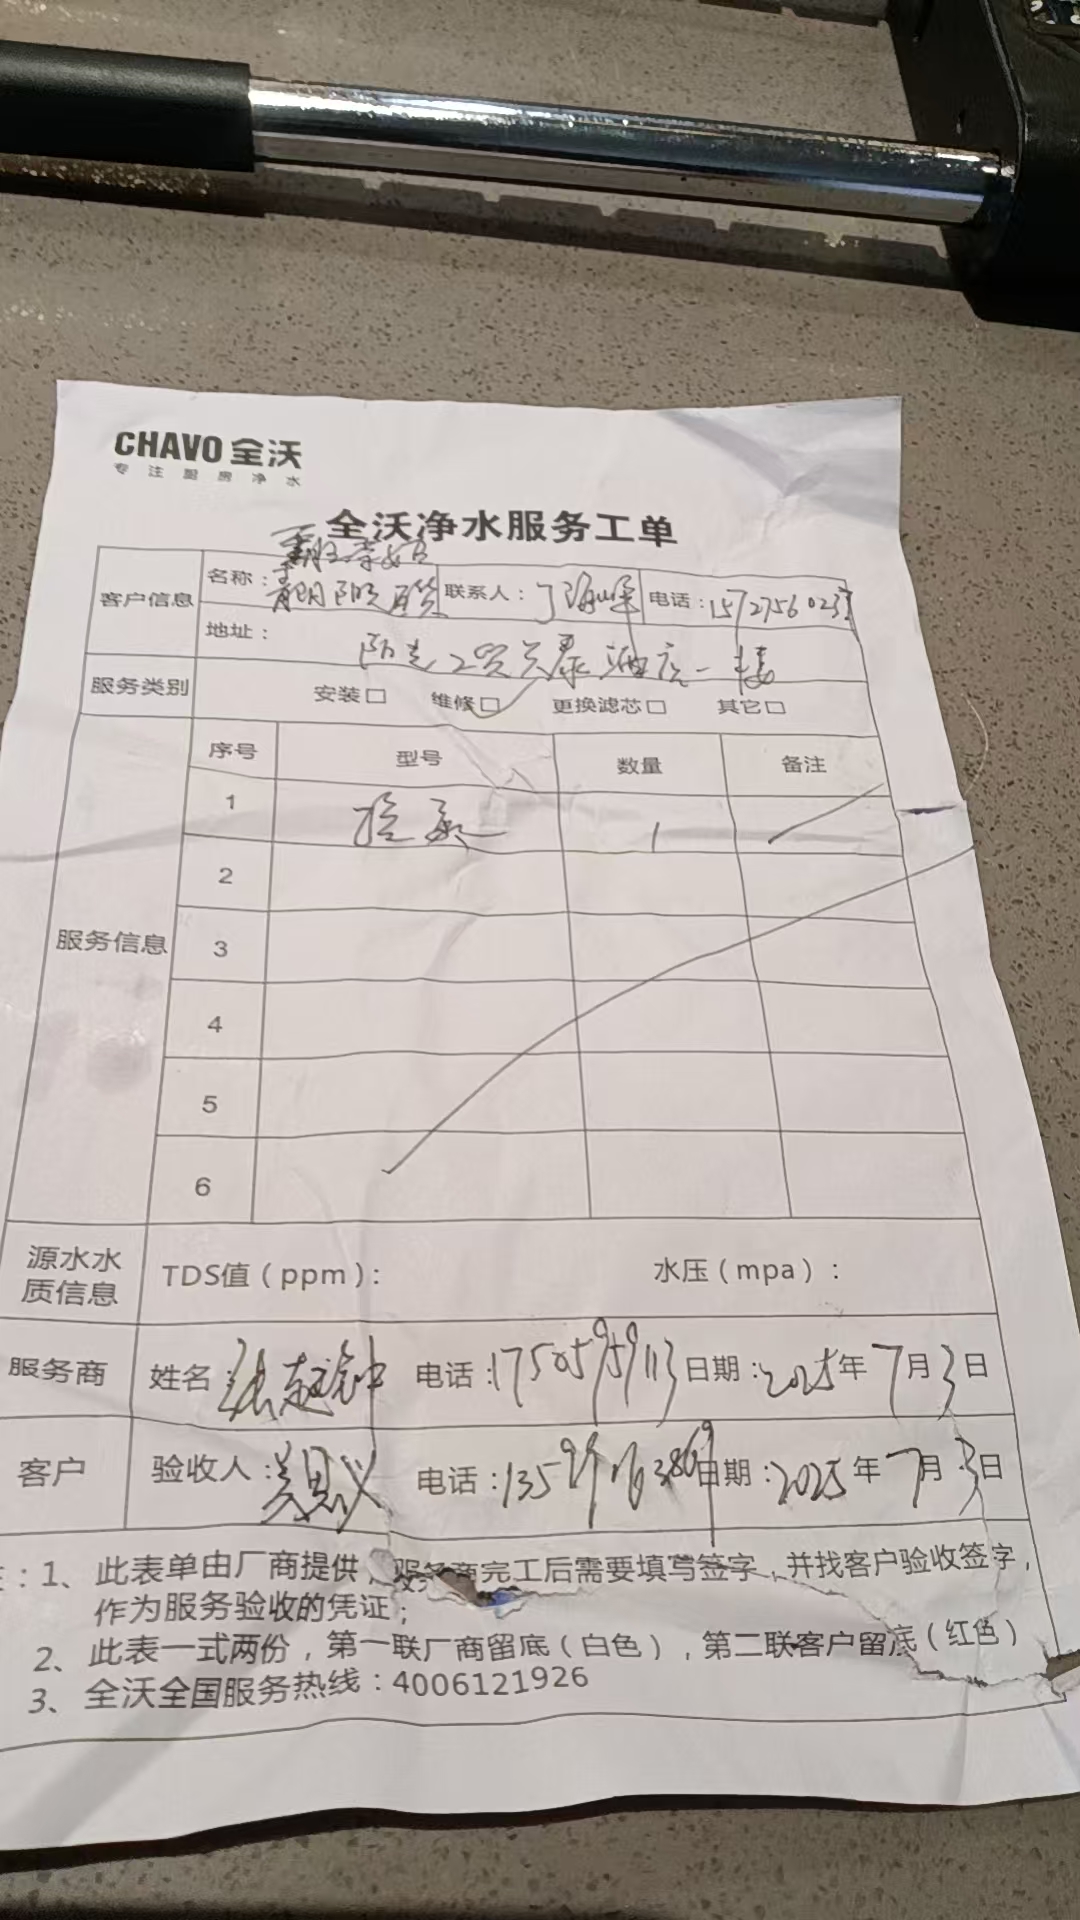 CHAVO 全沃
专注厨房净水
全沃净水服务工单
客户信息 名称： 联系人：丁海峰 电话：
地址： 阳光 酒店一楼
服务类别 安装□ 维修□ 更换滤芯□ 其它□
服务信息 序号 型号 数量 备注
1 1
2
3
4
5
6
源水水质信息 TDS值（ppm）： 水压（mpa）：
服务商 姓名： 电话：17505959113 日期：2025年7月3日
客户 验收人： 电话： 日期：2025年7月3日
：1、此表单由厂商提供，服务商完工后需要填写签字，并找客户验收签字，
作为服务验收的凭证；
2、此表一式两份，第一联厂商留底（白色），第二联客户留底（红色）
3、全沃全国服务热线：4006121926